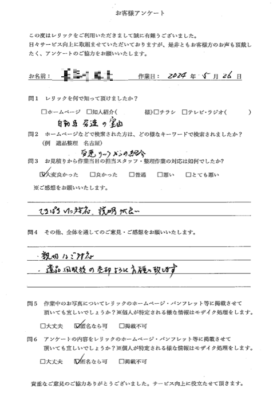 お客様アンケート
この度はレリックをご利用いただきまして誠に有難うございました。
日々サービス向上に取組ませていただいておりますが、是非ともお客様方のお声も頂戴し
たく、アンケートのご協力をお願いします。
お名前: 作業日: 2024 年 5 月 26 日
問1 レリックを何で知って頂けましたか?
□ホームページ □知人紹介( 様)□チラシ □テレビ・ラジオ( )
問2 ホームページなどで検索された方は、どの様なキーワードで検索されましたか?
(例 遺品整理 名古屋)
問3 お見積りから作業当日の担当スタッフ・整理作業の対応は如何でしたか?
☑大変良かった □良かった □普通 □悪い □とても悪い
※ご感想をお願いします。
問4 その他、全体を通してのご意見・ご感想をお願いします。
問5 作業中のお写真についてレリックのホームページ・パンフレット等に掲載させて
頂いても宜しいでしょうか?※個人が特定される様な情報はモザイク処理をします。
□大丈夫 ☑匿名なら可 □掲載不可
問6 アンケートの内容をレリックのホームページ・パンフレット等に掲載させて
頂いても宜しいでしょうか?※個人が特定される様な情報はモザイク処理をします。
□大丈夫 ☑匿名なら可 □掲載不可
貴重なご意見のご協力ありがとうございました。サービス向上に役立たせて頂きます。